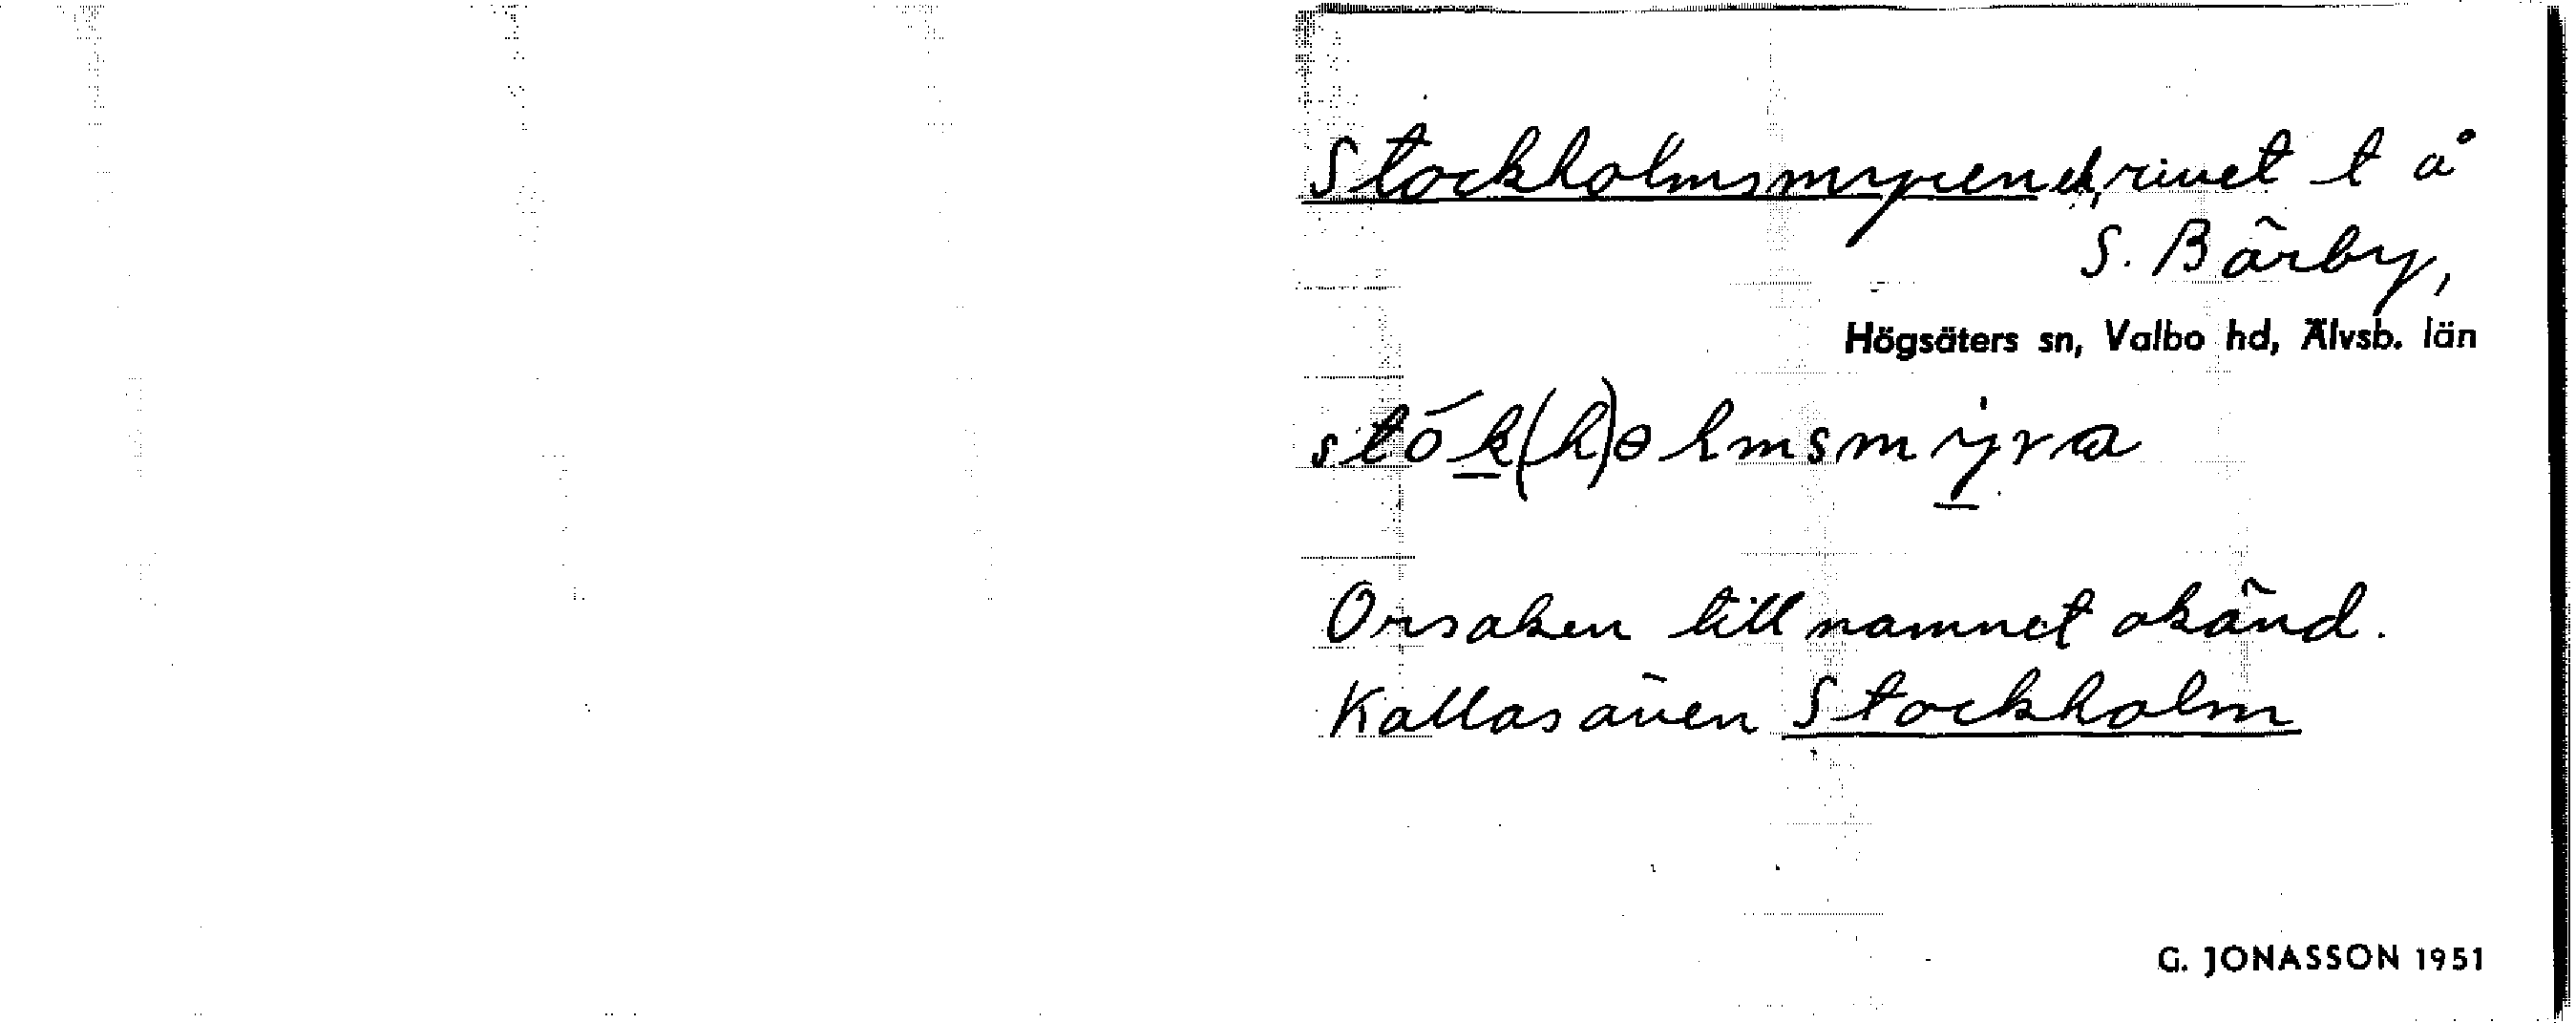 Stockholmsmyren d, rivet t å
S. Bärby,
Högsäters sn, Valbo hd, Älvsb. län
stók(h)ɵlmsmỳra
Orsaken till namnet okänd.
Kallas även Stockholm
G. JONASSON 1951